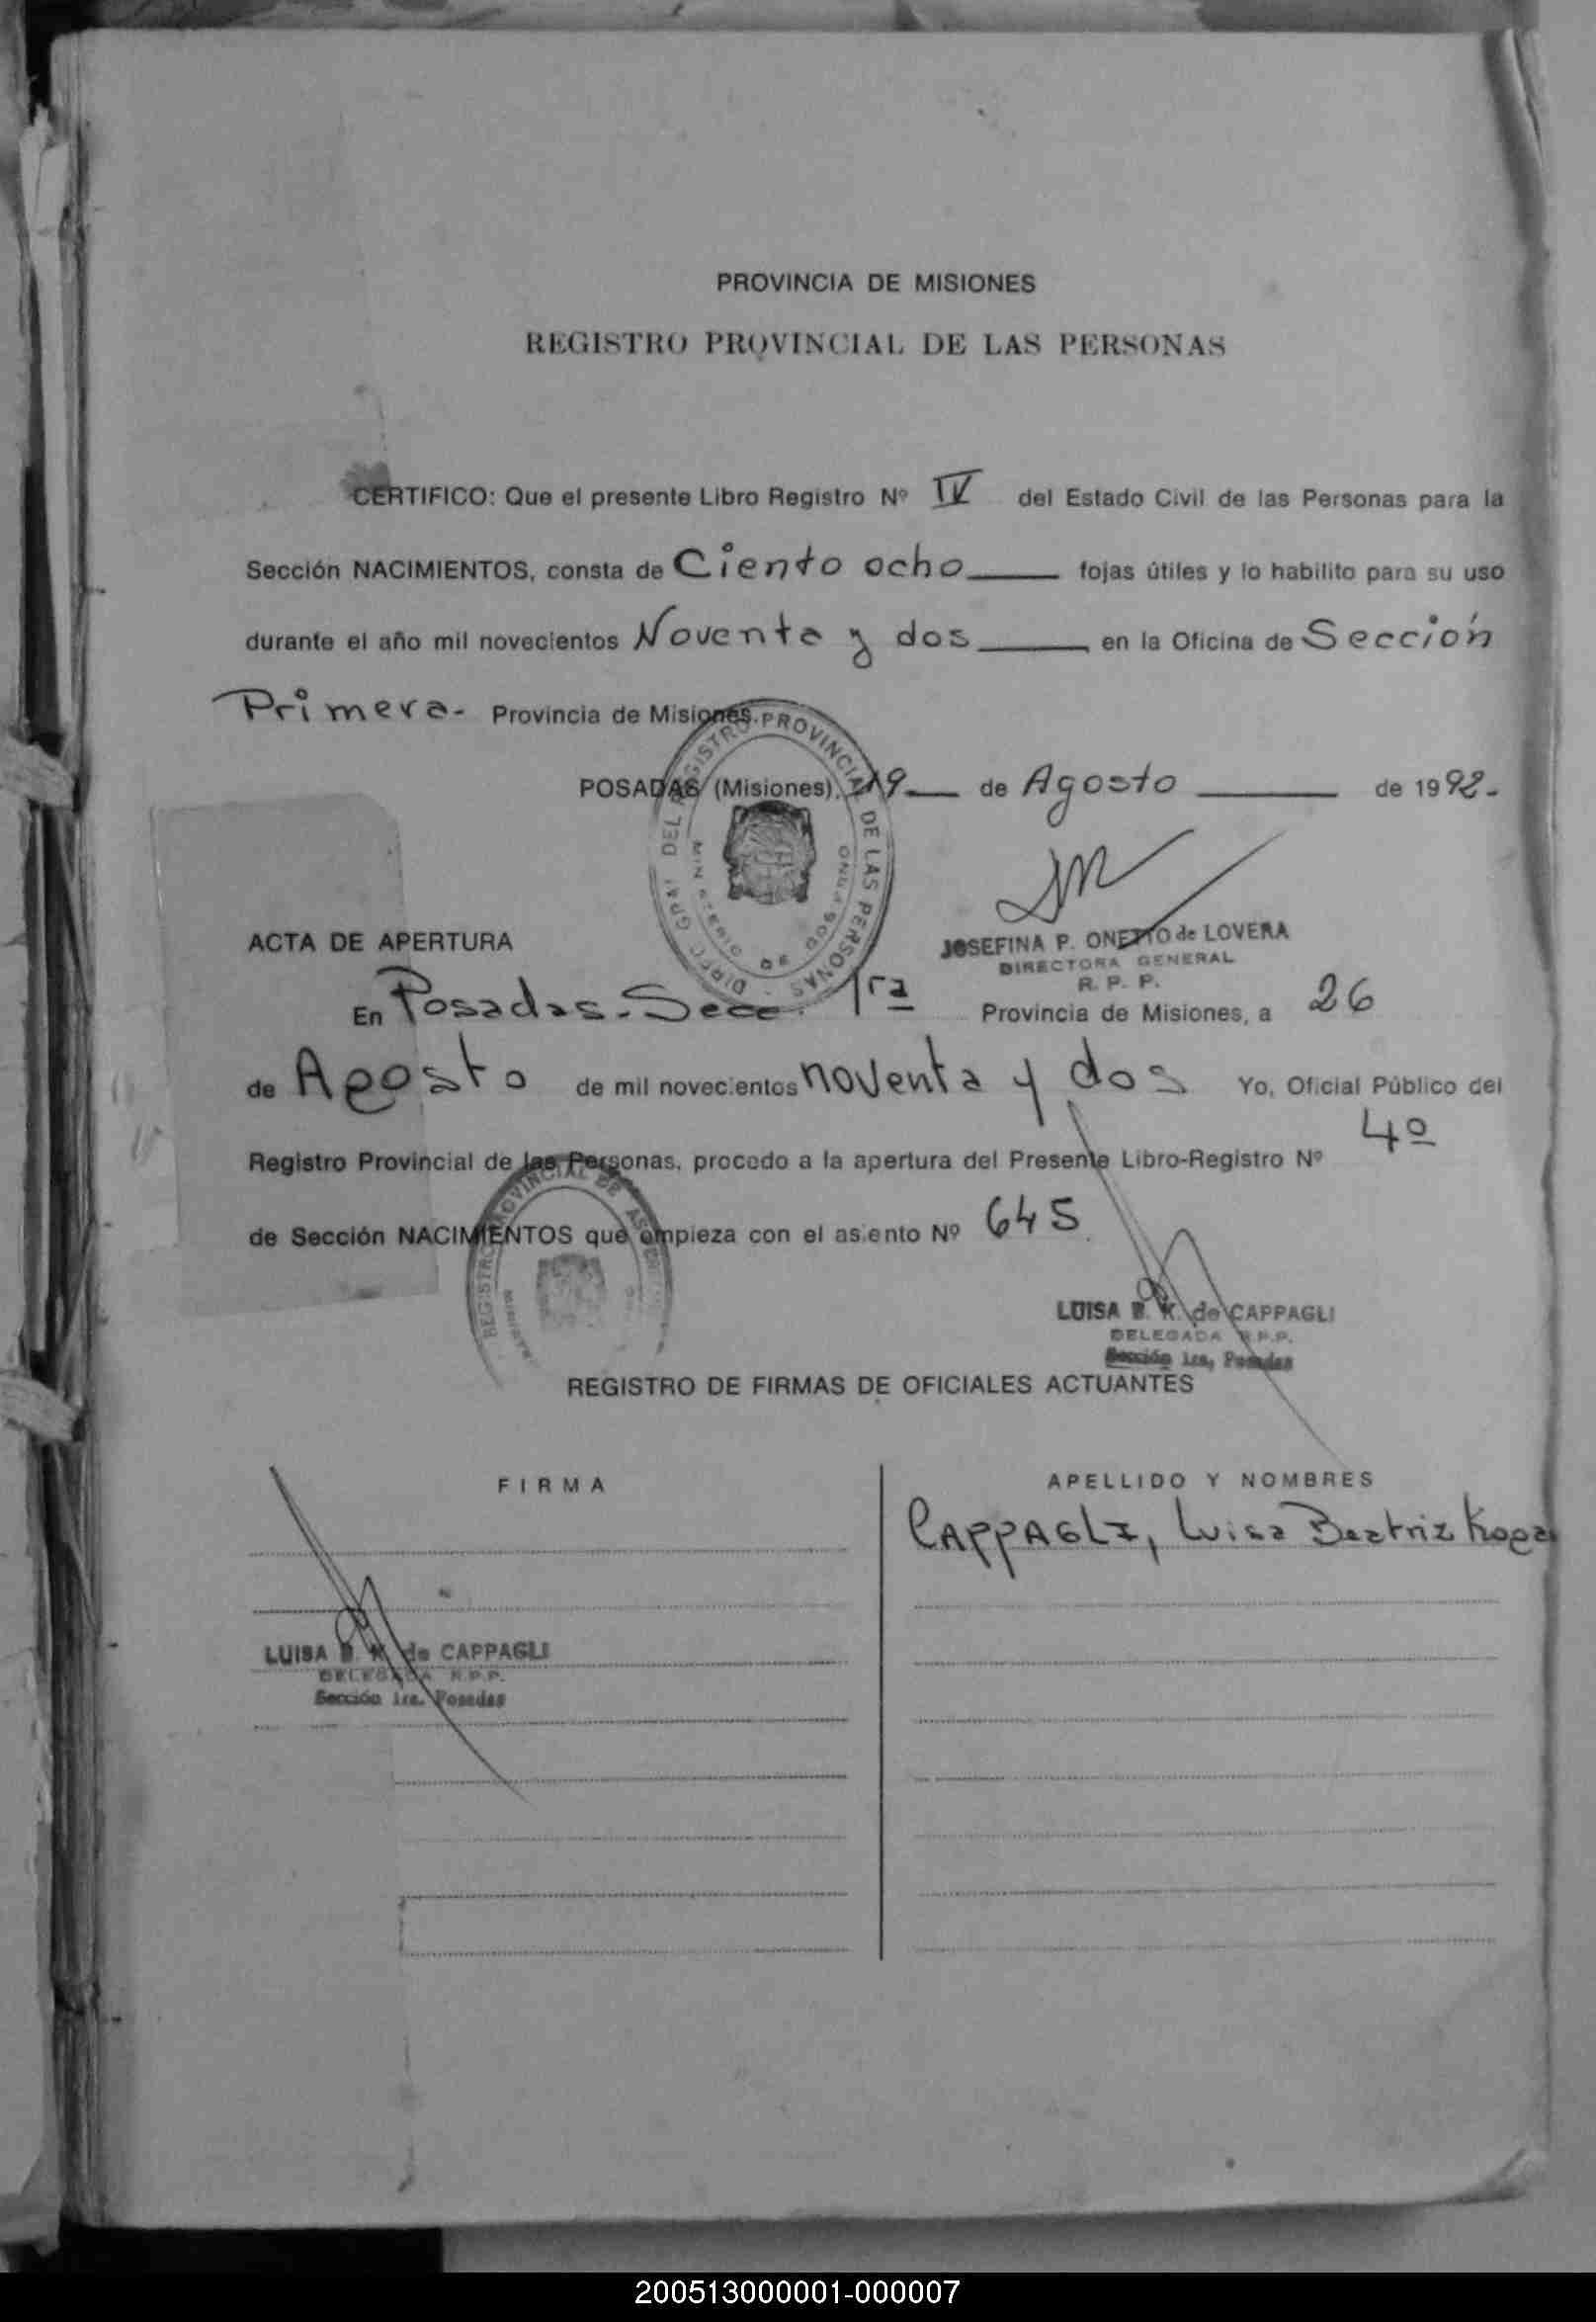 PROVINCIA DE MISIONES
REGISTRO PROVINCIAL DE LAS PERSONAS
CERTIFICO: Que el presente Libro Registro Nº IV del Estado Civil de las Personas para la
Sección NACIMIENTOS, consta de Ciento ocho fojas útiles y lo habilito para su uso
durante el año mil novecientos Noventa y dos en la Oficina de Sección
Primera- Provincia de Misiones.
POSADAS (Misiones), 19 de Agosto de 1992.-
DIREC. GRAL. DEL REGISTRO PROVINCIAL DE LAS PERSONAS
JOSEFINA P. ONETTO de LOVERA
DIRECTORA GENERAL
R. P. P.
ACTA DE APERTURA
En Posadas.- Secc. 1ra Provincia de Misiones, a 26
de Agosto de mil novecientos noventa y dos Yo, Oficial Público del
Registro Provincial de las Personas, procedo a la apertura del Presente Libro-Registro Nº 4º
de Sección NACIMIENTOS que empieza con el asiento Nº 645.
LUISA B. K. de CAPPAGLI
DELEGADA R.P.P.
Sección 1ra, Posadas
REGISTRO DE FIRMAS DE OFICIALES ACTUANTES
FIRMA
APELLIDO Y NOMBRES
CAPPAGLI, Luisa Beatriz
LUISA B. K. de CAPPAGLI
DELEGADA R.P.P.
Sección 1ra. Posadas
200513000001-000007